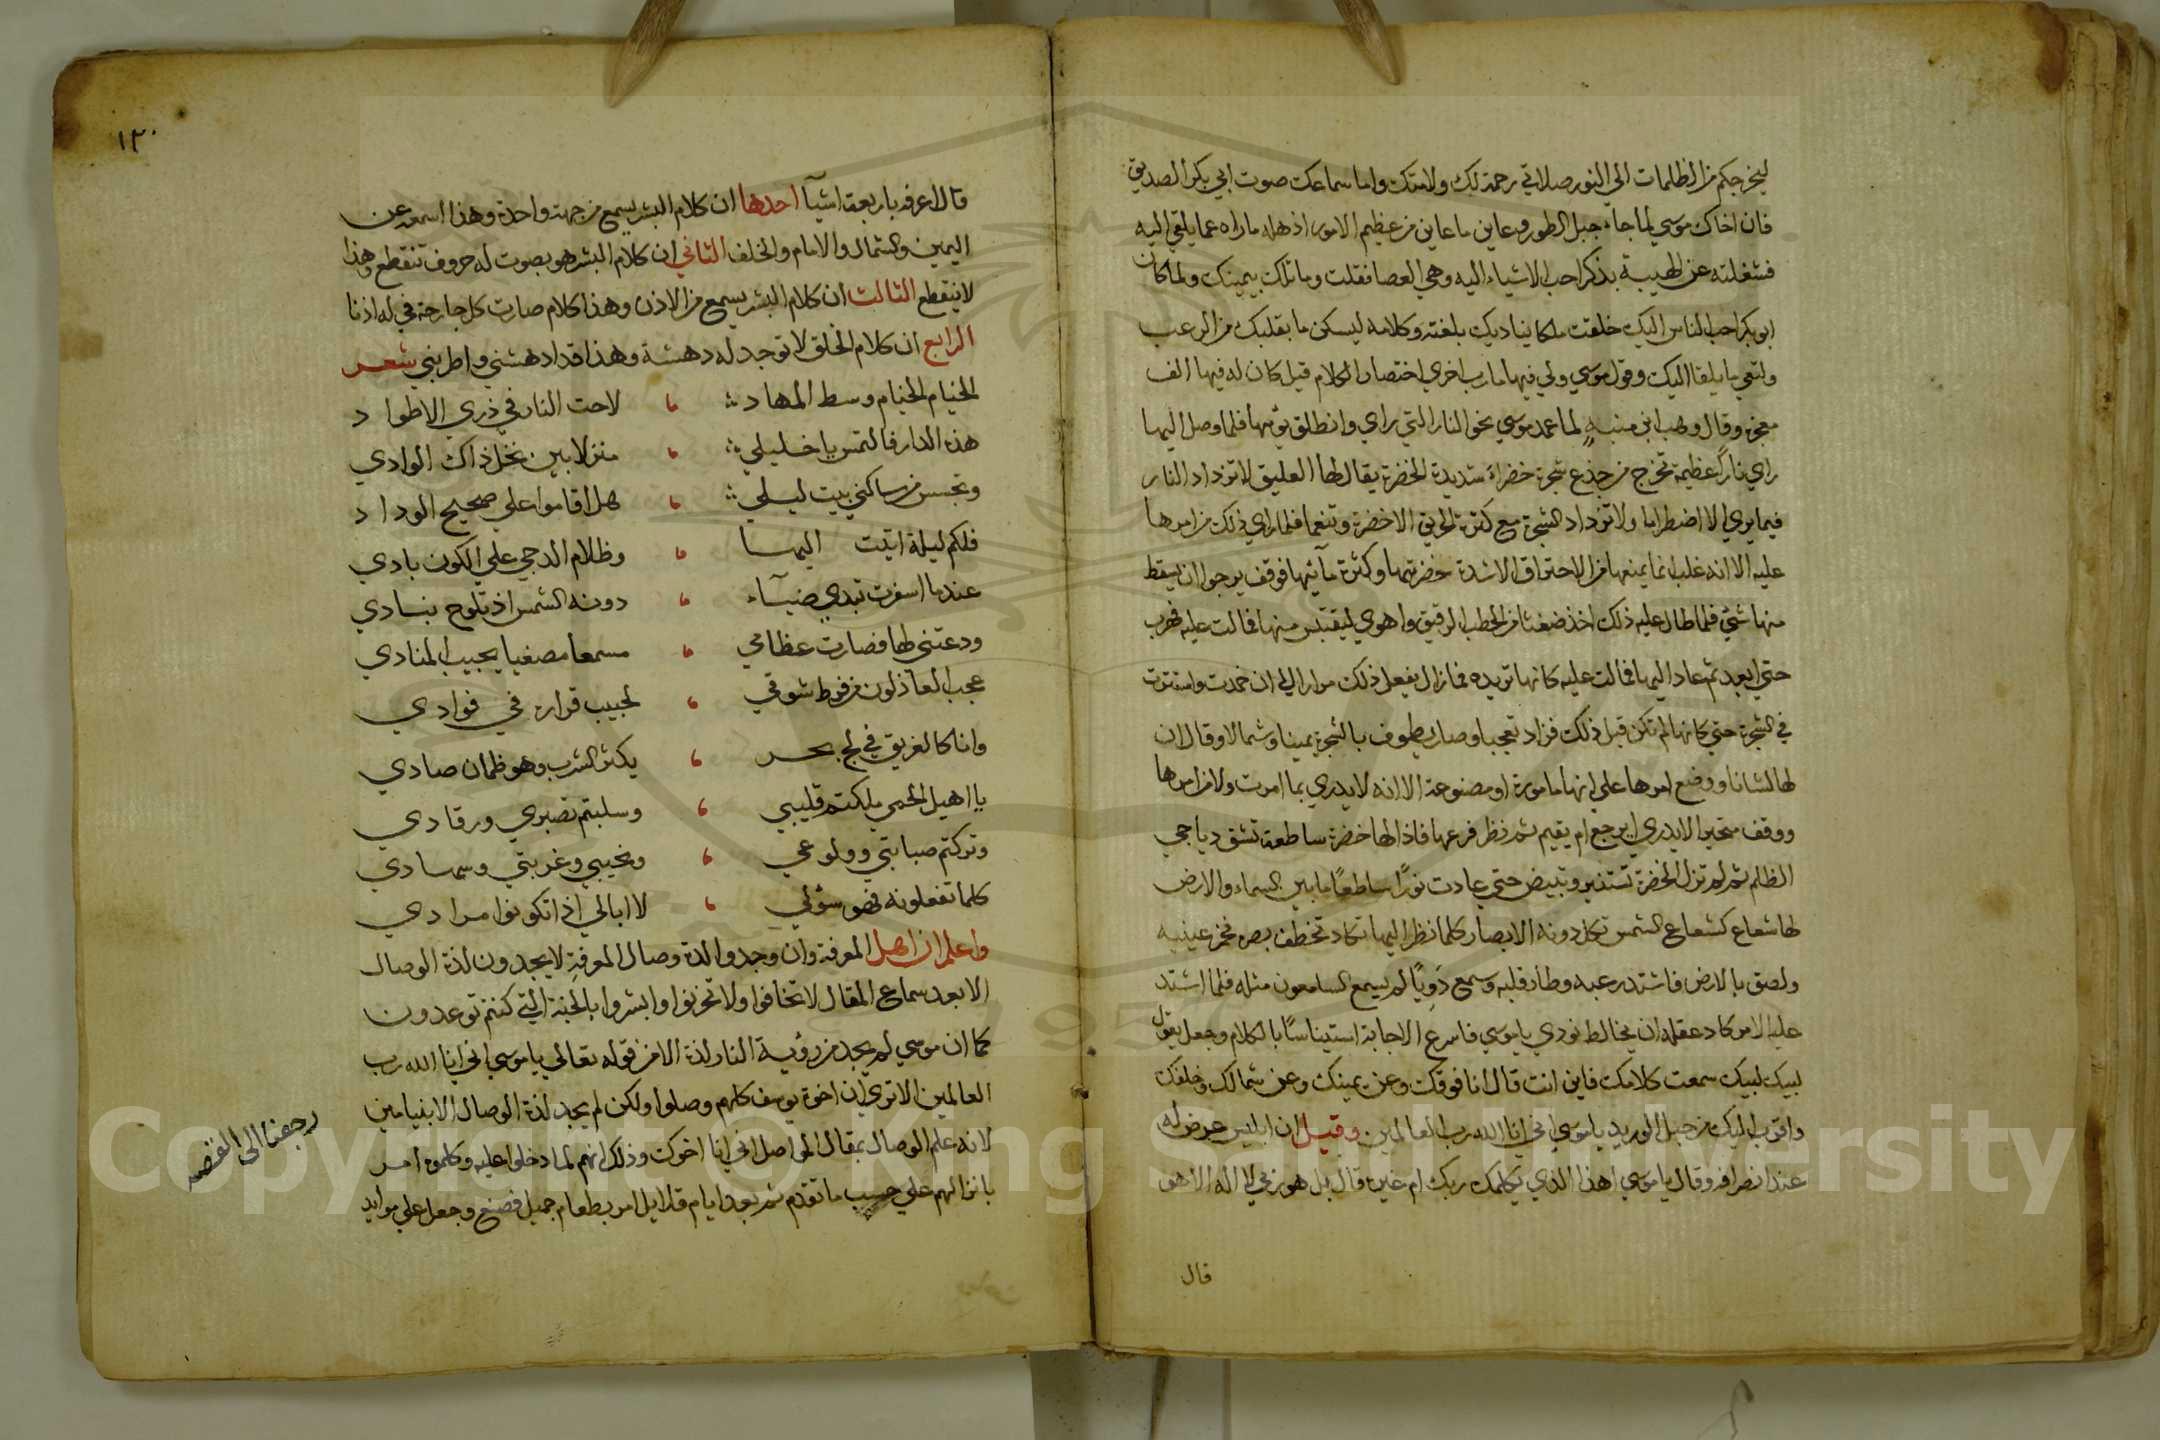 ليخرجكم من الظلمات الي النور صلاتي رحمة لك ولامتك واما سماعك صوت ابي بكر الصديق
فان اخاك موسي لما جاء جبل الطور وعاين ما عاين من عظيم الامور اذهله ما راه عما يلقي اليه
فشغلته عن الهيبة بذكر احب الاشياء اليه وهي العصا فقلت وما تلك بيمينك ولما كان
ابو بكر احب الناس اليك خلقت ملكا يناديك بلغته وكلامه ليسكن ما بقلبك من الرعب
ولتعي ما يلقا اليك وقول موسي ولي فيها مارب اخري اختصار الكلام قيل كان له فيها الف
معجزة وقال وهب ابن منبه لما عمد موسي نحو النار التي راي وانطلق يؤمها فلما وصل اليها
راي نارًا عظيمة تخرج من جذع شجرة خضراء شديدة الخضرة يقال لها العليق لا تزداد النار
فيما يري الا اضطراما ولا تزداد الشجرة مع كثرة الحريق الا خضرة وتنعما فلما راي ذلك من امرها
عليه الا انه غلب انما يمنعها من الاحتراق الا شدة خضرتها وكثرة مآئها فوقف يرجو ان يسقط
منها شئ فلما طال عليه ذلك اخذ ضغثا من الحطب الرقيق واهوي ليقتبس منها فمالت عليه فهرب
حتي ابعد ثم عاد اليها فمالت عليه كانها تريده فما زال يفعل ذلك مرارا الي ان خمدت واستترت
في الشجرة حتي كانها لم تكن قبل ذلك فزاد تعجبا وصار يطوف بالشجرة يمينا وشمالا وقال ان
لها لشانا ووضع امرها علي انها مامورة او مصنوعة الا انه لا يدري بما امرت ولا من امرها
ووقف متحيرا لا يدري ايرجع ام يقيم ثم نظر فرعها فاذا لها خضرة ساطعة تشق دياجي
الظلم ثم لم تزل الخضرة تستنير وتبيض حتي عادت نورًا ساطعًا ما بين السماء والارض
لها شعاع كشعاع الشمس تكل دونه الابصار كلما نظر اليها تكاد تخطف بصره فخمر عينيه
ولصق بالارض فاشتد رعبه وطار قلبه وسمع دَويًا لم يسمع السامعون مثله فلما اشتد
عليه الامر كاد عقله ان يخالط نودي يا موسي فاسرع الاجابة استيناسًا بالكلام وجعل يقول
لبيك لبيك سمعت كلامك فاين انت قال انا فوقك وعن يمينك وعن شمالك وخلفك
واقرب اليك من حبل الوريد يا موسي اني انا الله رب العالمين وقيل ان ابليس عرض له
عند انصرافه وقال يا موسي اهذا الذي يكلمك ربك ام غيره قال بل هو ربي لا اله الا هو
قال
١٣٠
قال اعرفه باربعة اشيآء احدها ان كلام البشر يسمع من جهة واحدة وهذا اسمعه عن
اليمين والشمال والامام والخلف الثاني ان كلام البشر هو بصوت له حروف تنقطع وهذا
لا ينقطع الثالث ان كلام البشر يسمع من الاذن وهذا كلام صارت كل جارحة في له اذنا
الرابع ان كلام الخلق لا توجد له دهشة وهذا قد ادهشني واطربني شعر
لخيام الخيام وسط المهاد لاحت النار في ذري الاطواد
هذه الدار فالتمس يا خليلي منزلا بين نخل ذاك الوادي
وتجسس من ساكني بيت ليلي هل اقاموا علي صحيح الوداد
فلكم ليلة اتيت اليها وظلام الدجي علي الكون بادي
عندما اسفرت تبدي ضيآء دونه الشمس اذ تلوح بنادي
ودعتني لها فصارت عظامي مسمعا مصغيا يجيب المنادي
عجب العاذلون من فرط شوقي لحبيب قراره في فوادي
وانا كالغريق في لج بحر يكثر الشرب وهو ظمان صادي
يا اهيل الحمي ملكتم قليبي وسلبتم تصبري ورقادي
وتركتم صبابتي وولوعي ونحيبي وغربتي وسهادي
كلما تفعلونه فهو سؤلي لا ابالي اذا تكونوا مرادي
واعلم ان اهل المعرفة وان وجدوا لذة وصال المعرفة لا يجدون لذة الوصال
الا بعد سماع المقال لا تخافوا ولا تحزنوا وابشروا بالجنة التي كنتم توعدون
كما ان موسي لم يجد من رؤية النار لذة الا من قوله تعالي يا موسي اني انا الله رب
العالمين الا تري ان اخوة يوسف كلهم وصلوا ولكن لم يجد لذة الوصال الا بنيامين
لانه علم الوصال بمقال المواصل اني انا اخوك وذلك انهم لما دخلوا عليه وكلموه امر
بانزالهم علي حسب ما تقدم ثم بعد ايام قلايل امر بطعام جميل فصنع وجعل علي موايد
رجعنا الي القصه
Copyright © King Saud University